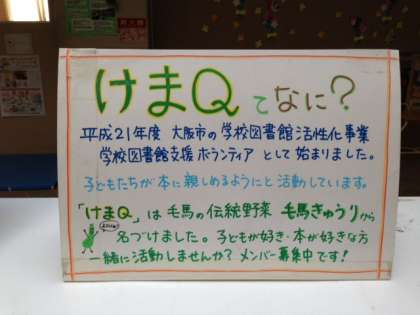 けまQってなに?
平成21年度 大阪市の学校図書館活性化事業
学校図書館支援ボランティア として 始まりました。
子どもたちが本に親しめるようにと活動しています。
「けまQ」は 毛馬の伝統野菜 毛馬きゅうりから
名づけました。子どもが好き・本が好きな方
一緒に活動しませんか? メンバー募集中です!